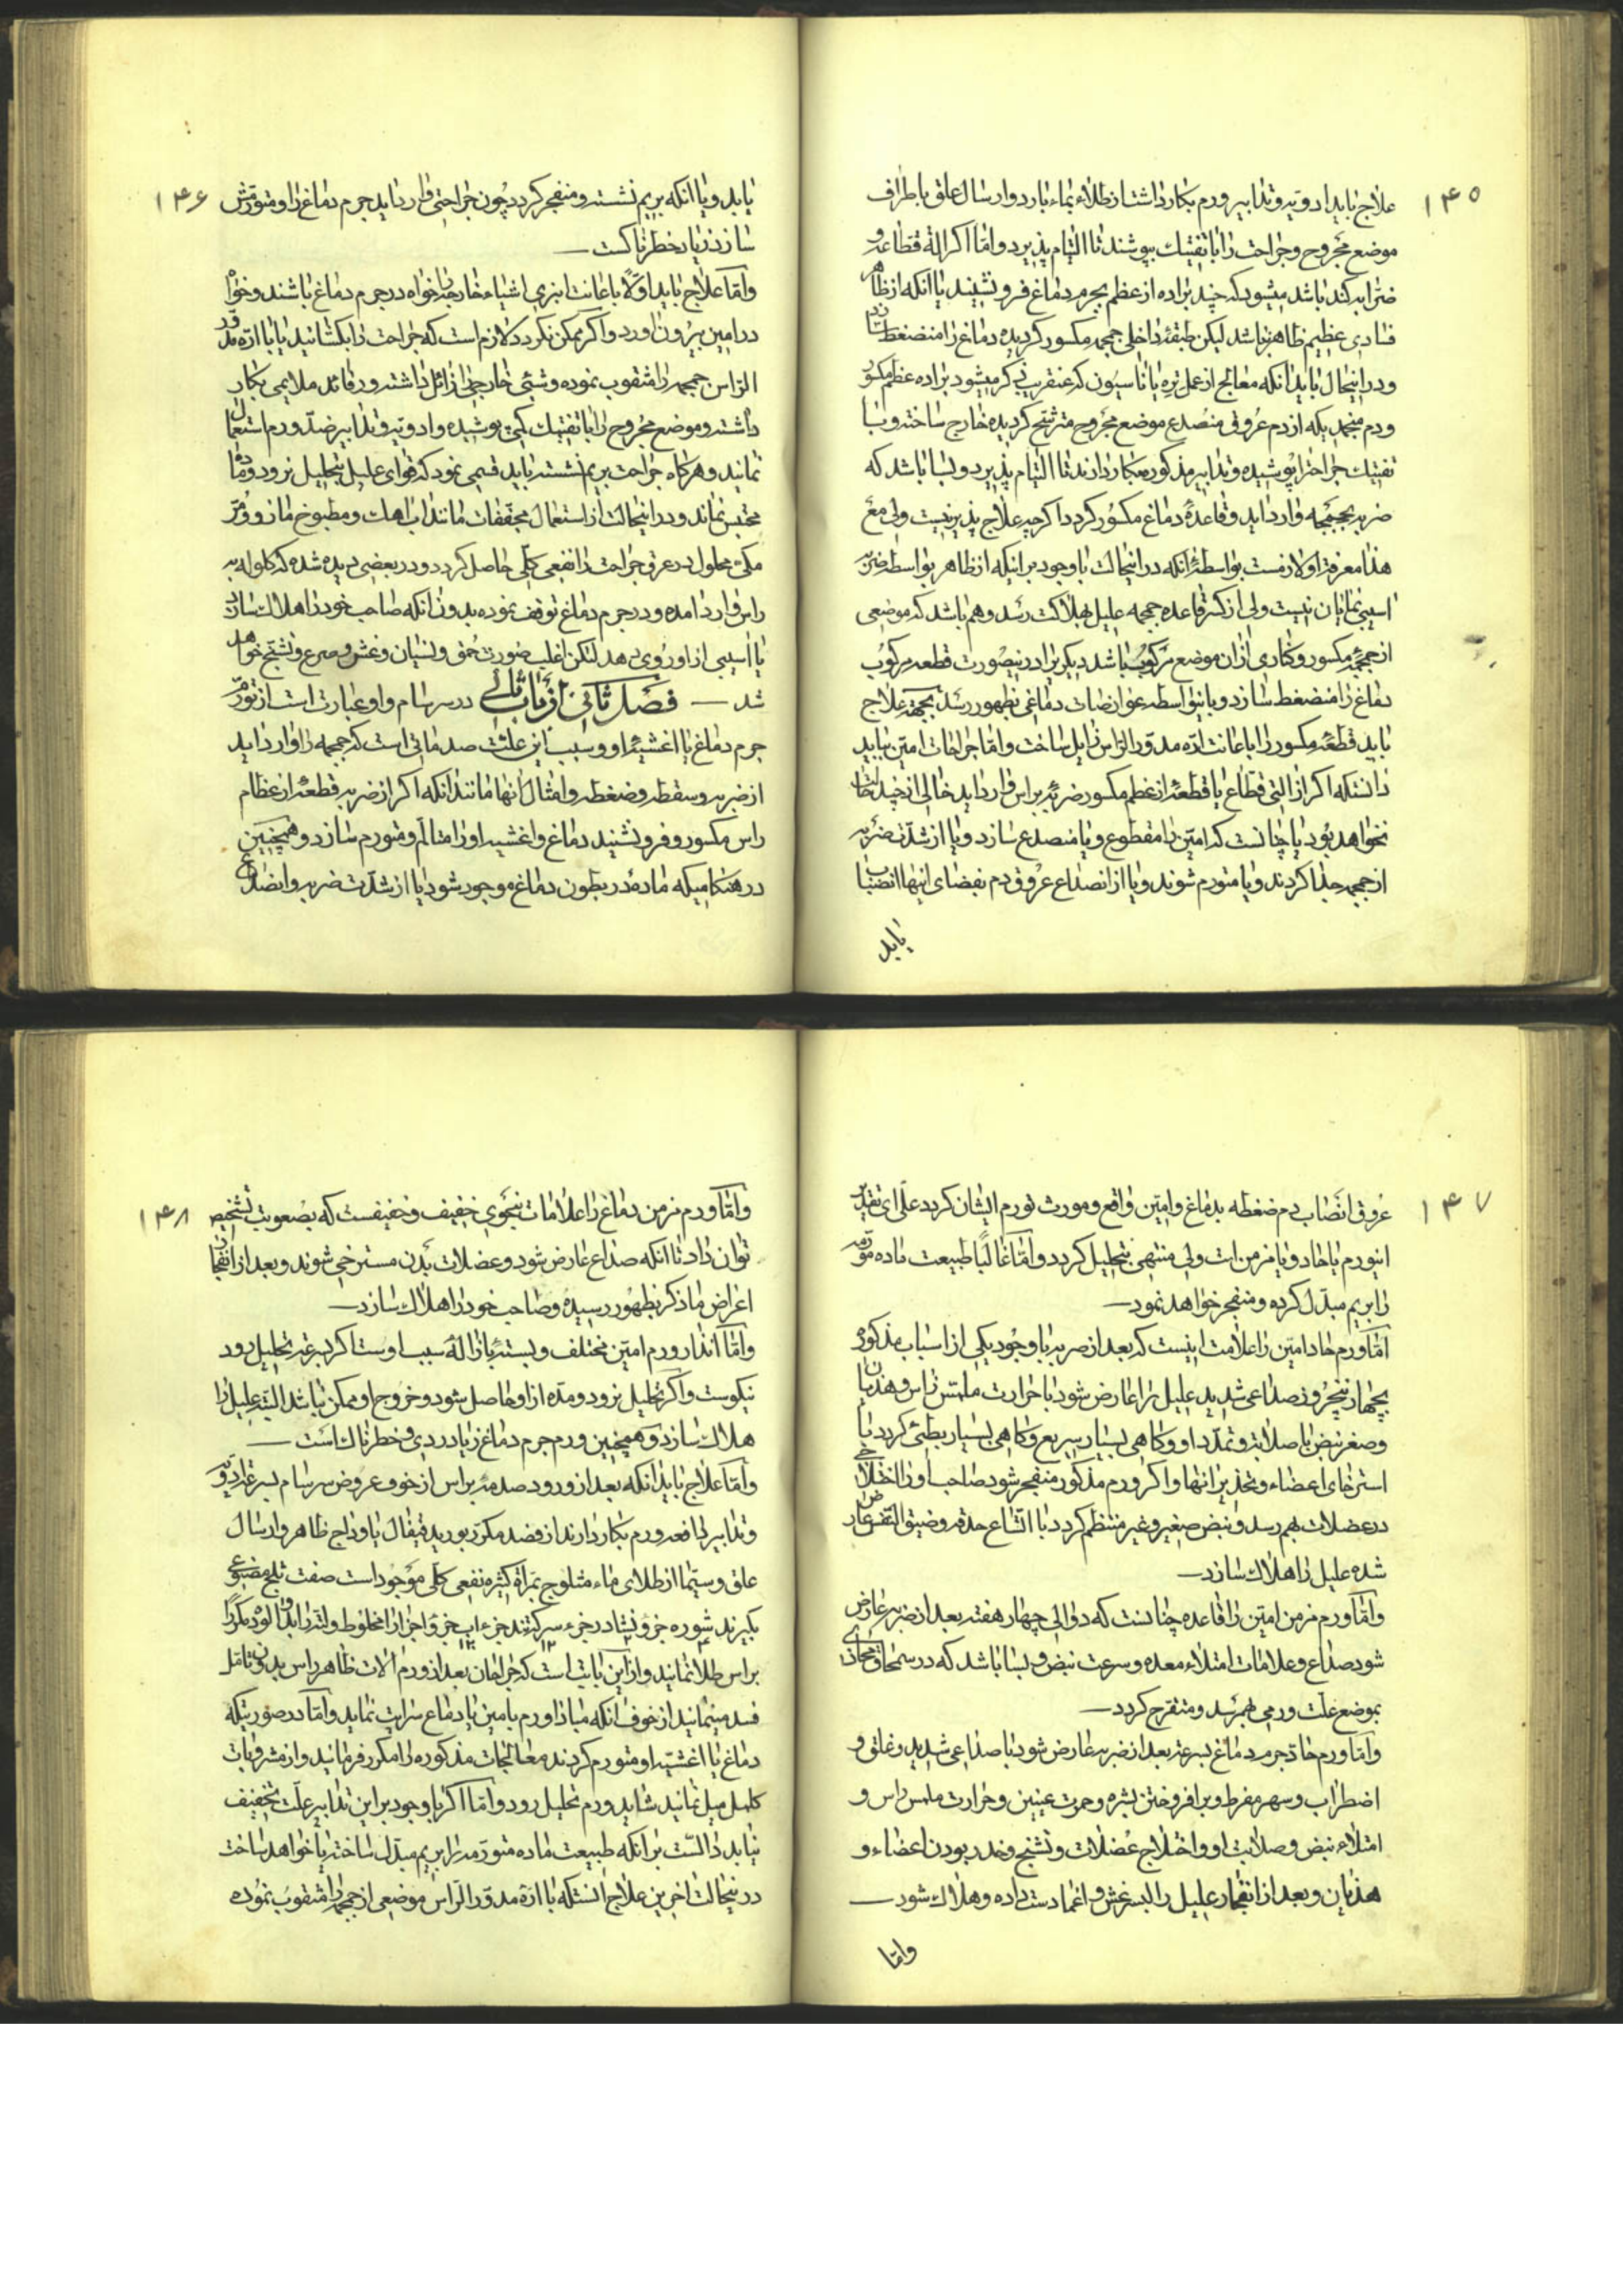 ۱۴۵
علاج باید ادویه و تدابیر ورم بکار داشت از طلاء بماء بارد و ارسال علق باطراف
موضع مجروح و جراحت را با تفتیک بپوشند تا التیام پذیرد و اما اکر آلة قطاعه و
ضرابه کند باشد میشود که چند براده از عظم بجرم دماغ فرو نشیند یا آنکه از ظاهر
فسادی عظیم ظاهر نباشد لیکن طبقهٔ داخلی جمجمه مکسور کردیده دماغ را منضغط سازد
و در اینحال باید آنکه معالج از عمل تره پاناسیون که عنقریب ذکر میشود براده عظم مکسور
و دم منجمدیکه از دم عروق منصدع موضع مجروح مترشح کردیده خارج ساخته و با
تفتیک جراحترا پوشیده و تدابیر مذکوره بکار دارند تا التیام پذیرد و بسا باشد که
ضربه بجمجمه وارد آید و قاعدهٔ دماغ مکسور کردد اکرچه علاج پذیر نیست ولی مع
هذا معرفة او لازمست بواسطهٔ آنکه در اینحالت با وجود بر اینکه از ظاهر بواسطه ضربه
آسیبی نمایان نیست ولی از کسر قاعده جمجمه علیل بهلاکت رسد و هم باشد که موضعی
از جمجمه مکسور و کناری از آن موضع مرکوب باشد دیکریرا در نیصورت قطعه مرکوب
دماغ را منضغط سازد و باینواسطه عوارضات دماغی بظهور رسد بجهة علاج
باید قطعهٔ مکسور را باعانت ارّه مدوّر الرّاس زایل ساخت و اما جراحات امّین بباید
دانستکه اکر از التی قطاع یا قطعهٔ از عظم مکسور ضربهٔ براس وارد آید خالی از چند حالت
نخواهد بود یا چنانست که امّین را مقطوع و یا منصدع سازد و یا از شدّت ضربه
از جمجمه جدا کردند و یا متورم شوند و یا از انصداع عروق دم بفضای آنها انصباب
یابد
۱۴۶
یابد و یا آنکه بریم نشسته و منفجر کردد چون جراحتی وارد آید جرم دماغ را و متورّمش
سازد زیاد خطرناکست
و اما علاج باید اوّلاً باعانت انبری اشیاء خارجه را خواه در جرم دماغ باشند و خواه
در امین بیرون آورد و اکر ممکن نکردد لازم است که جراحت را بکشانید یا با ارّه مدوّر
الرّاس جمجمه را مثقوب نموده و شیئی خارجی را زائل داشته و رفائد ملایمی بکار
داشته و موضع مجروح را با تفتیک کمی پوشیده و ادویه و تدابیر ضدّ ورم استعمال
نمایند و هرکاه جراحت بریم نشسته باید قسمی نمود که قوای علیل بتحلیل نرود و مادّه
محتبس نماند و در اینحالت از استعمال مجفّفات مانند آب آهک و مطبوخ مازو و مرّ
مکی محلول در عرق جراحت را نفعی کلّی حاصل کردد و در بعضی دیده شده که کلوله به
راس وارد آمده و در جرم دماغ توقف نموده بدون آنکه صاحب خود را هلاک سازد
یا آسیبی از او روی دهد لیکن اغلب ضورت حمق و نسیان و غش و صرع و تشنّج خواهد
شد فصل ثانی از باب ثانی در سرسام و او عبارت است از تورّم
جرم دماغ یا اغشیهٔ او و سبب این علت صدماتی است که جمجمه را وارد آید
از ضربه و سقطه و ضغطه و امثال آنها مانند آنکه اکر از ضربه قطعهٔ از عظام
راس مکسور و فرو نشیند دماغ و اغشیه او را متألم و متورم سازد و همچنین
در هنکامیکه مادهٔ در بطون دماغ موجود شود یا از شدّت ضربه و انصداع
۱۴۷
عروق انصاب دم ضغطه بدماغ و امّین واقع و مورث تورم ایشان کردد علی ای تقدیر
اینورم یا حاد و یا مزمن است ولی منتهی بتحلیل کردد و اما غالبًا طبیعت ماده مورّمه
را بریم مبدّل کرده و منفجر خواهد نمود
امّا ورم حاد امّین را علامت اینست که بعد از ضربه با وجود یکی از اسباب مذکوره
بچهار پنجروز صداعی شدید علیل را عارض شود با حرارت ملمس راس و هذیان
و صغر نبض با صلابة و تمدّد او و کاهی بسیار سریع و کاهی بسیار بطئی کردد با
استرخای اعضاء و تخدیر آنها و اکر ورم مذکور منفجر شود صاحب او را اختلاجی
در عضلات بهم رسد و نبض صغیر و غیر منتظم کردد با اتّساع حدقه و ضیق النفس عارض
شده علیل را هلاک سازد
و امّا ورم مزمن امّین را قاعده چنانست که در والی چهار هفته بعد از ضربه عارض
شود صداع و علامات امتلاء معده و سرعت نبض و بسا باشد که در سمحاق محاذی
بموضع علت ورمی بهمرسد و متقرح کردد
و امّا ورم حادّ جرم دماغ بسرعة بعد از ضربه عارض شود با صداعی شدید و غلق و
اضطراب و سهر مفرط و برافروختن بشره و حمرت عینین و حرارت ملمس راس و
امتلاء نبض و صلابت او و اختلاج عضلات و تشنج و خدر بودن اعضاء و
هذیان و بعد از انفجار علیل را لبسرغش و اغما دست داده و هلاک شود
و امّا
۱۴۸
و امّا ورم مزمن دماغ را علامات بنحوی خفیف و خفیفست که بصعوبت تشخیص
توان داد تا آنکه صداع عارض شود و عضلات بدن مسترخی شوند و بعد از انفجار آن
اعراض ماذکر بظهور رسیده و صاحب خود را هلاک سازد
و امّا انذار ورم امّین مختلف و بسته بازالهٔ سبب اوست اکر بسرعة بتحلیل رود
نیکوست و اکر بتحلیل نرود و مدّه از او حاصل شود و خروج او ممکن نباشد البتّه علیل را
هلاک سازد و همچنین ورم جرم دماغ زیاد ردی و خطرناک است
و امّا علاج باید آنکه بعد از ورود صدمهٔ براس از خوف عروض سرسام بسرعة ادویه
و تدابیر دافعه ورم بکار دارند از فصد مکرّر بورید قیفال یا وداج ظاهر و ارسال
علق و سیّما از طلای ماء مثلوج بمرات کثیره نفعی کلّی موجود است صفت ثلج مصنوعی
بکیرند شوره جزو نشادر جزء سرکه تند جزء آب جزو اجزا را مخلوط و لته را بدو آلوده مکررًا
براس طلا نمایند و از این بابت است که جراحان بعد از ورم آلات ظاهر راس بدون تامّل
فصد مینمایند از خوف آنکه مبادا ورم بامین یا دماغ سرایت نماید و امّا در صورتیکه
دماغ یا اغشیه او متورم کردند معالجات مذکوره را مکرر فرمایند و از مشروبات
کلمل میل نمایند شاید ورم بتحلیل رود و امّا اکر با وجود بر این تدابیر علّت تخفیف
نیابد دالّست بر آنکه طبیعت ماده متورّمه را بریم مبدّل ساخته یا خواهد ساخت
در نیحالت آخرین علاج آنستکه با ارّه مدوّر الرّاس موضعی از جمجمه را مثقوب نموده